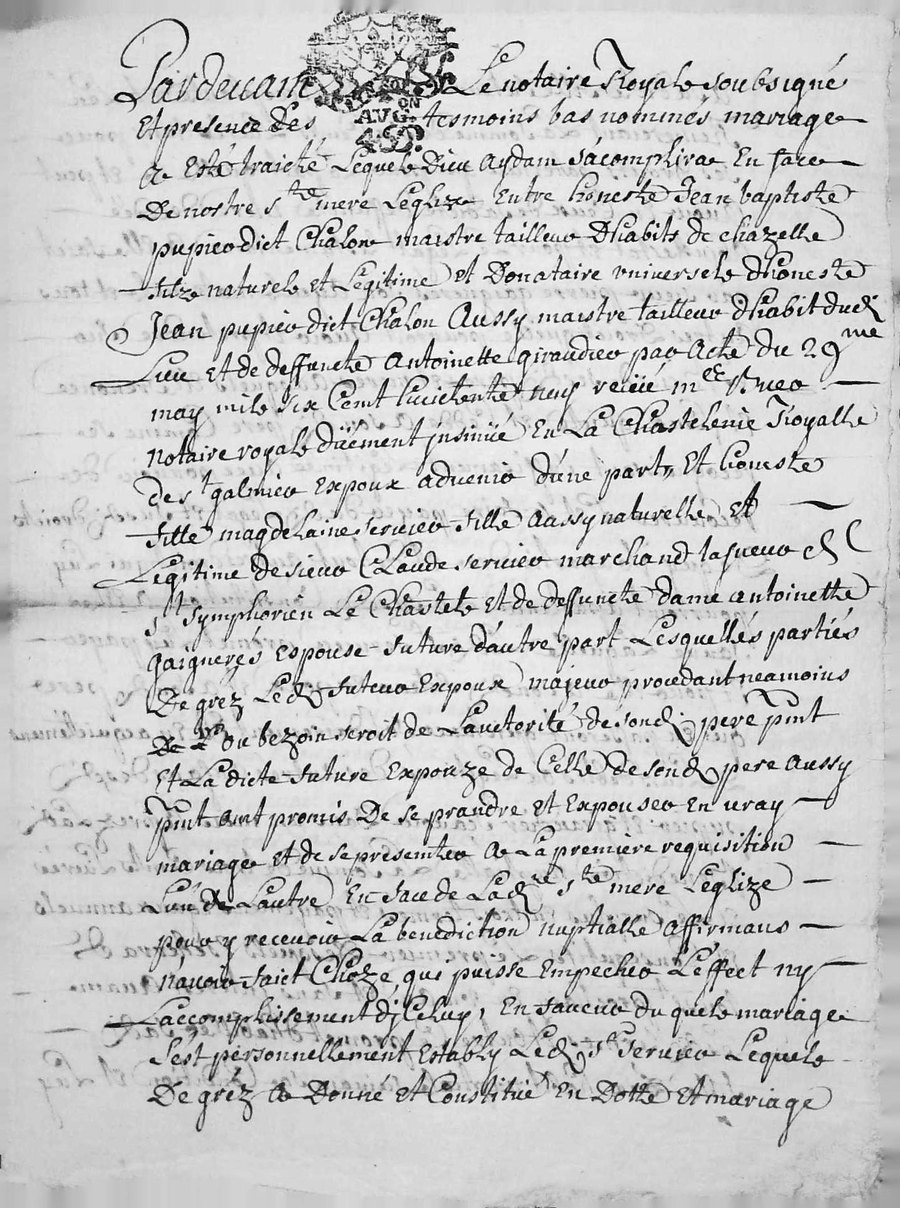 Pardevant Le notaire Royale soubsigné
AUG. ON
4.S.D.
Et presence des tesmoins bas nommés mariage
a Esté traicté Lequele Dieu aydam s'acomplirae En face
De nostre ste mere Leglize Entre honeste Jean baptiste
pupier dict Chalon maistre tailleur Dhabits de chazelle
filz naturele et Legitime et Donataire vniversele dhoneste
Jean pupier dict Chalon Aussy maistre tailleur dhabit dud
Lieu et de deffuncte Antoinette giraudier par Acte du 29me
may mile six Cent huictente neuf receüe me
notaire royale düement jnsinüé En La Chastelenie Royalle
de st galmier Expoux advenir d'une part, Et honeste
fille magdelaine servier fille Aussy naturelle et
Legitime de sieur CLaude servier marchand
st symphorien Le Chastele et de deffuncte dame antoinette
gaigneres espouse future d'autre part Lesquelles parties
De gréz Led futeur Expoux majeur procedant neamoins
De Ln ou bezoin seroit de Lauctorité de sond pere Pnt
Et Ladicte future Expouze de Celle de sond pere aussy
Pnt ont promis De se prandre et Expouser En vray
mariage et de se presenter a La premiere requisition
Lun de Lautre En face de Lad ste mere Leglize
pour y recevoir La benediction nuptialle affirmans
n'avoir faict Choze qui puisse Empecher L'effect ny
Laccomplissement djCeluy, En faveur du quele mariage
s'est personnellement Estably Led sr servier Lequele
De gréz a Donné et Constitué En Dotte Et mariage